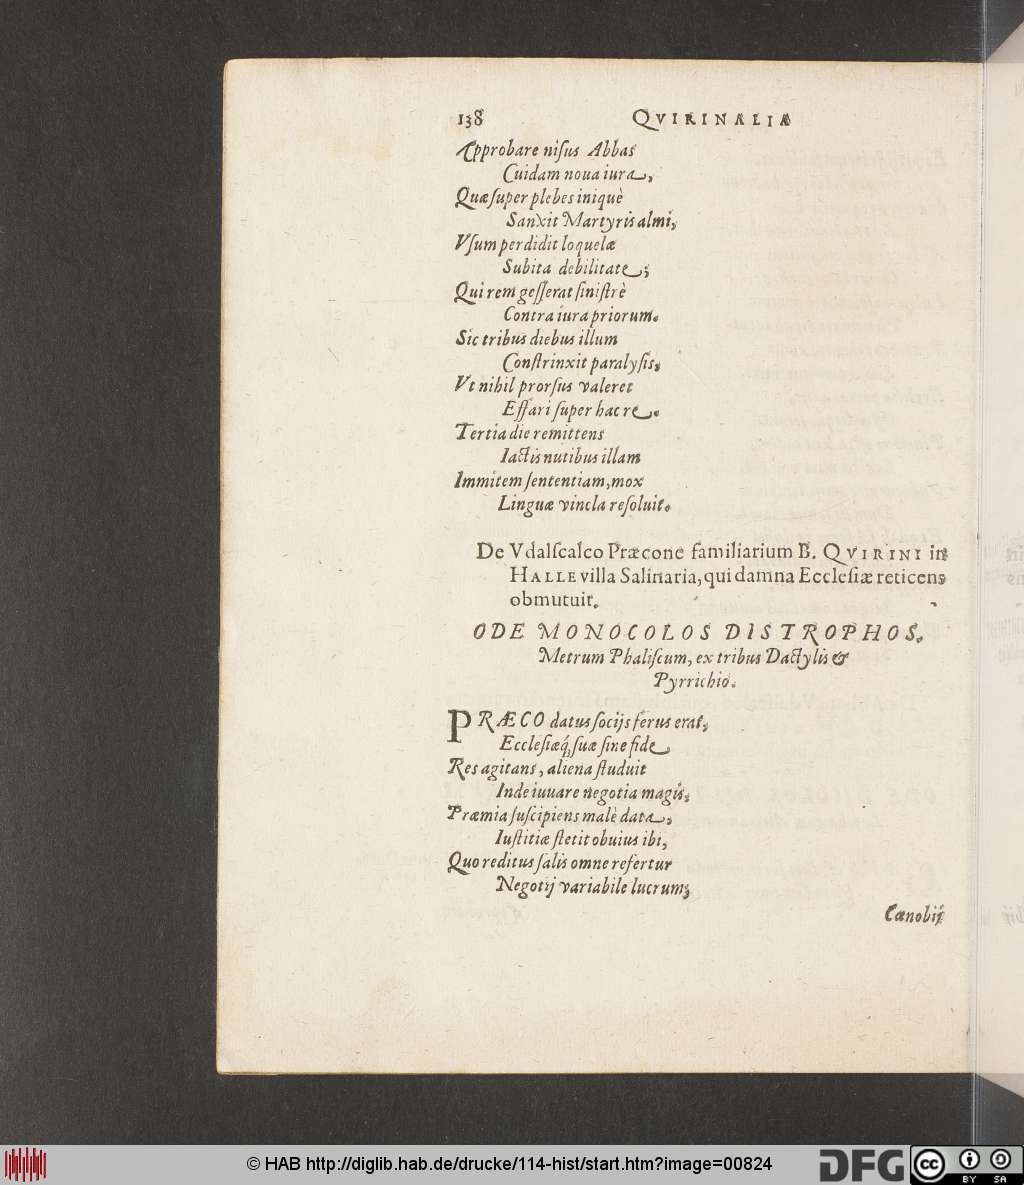 138 QVIRINALIA
Approbare nisus Abbas
Cuidam noua iura,
Quæ super plebes iniquè
Sanxit Martyris almi,
Vsum perdidit loquelæ
Subita debilitate;
Qui rem gesserat sinistrè
Contra iura priorum.
Sic tribus diebus illum
Constrinxit paralysis,
Vt nihil prorsus valeret
Effari super hac re.
Tertia die remittens
Iactis nutibus illam
Immitem sententiam, mox
Linguæ vincla resoluit.
De Vdalscalco Præcone familiarium B. QVIRINI in
HALLE villa Salinaria, qui damna Ecclesiæ reticens
obmutuit.
ODE MONOCOLOS DISTROPHOS.
Metrum Phaliscum, ex tribus Dactylis &
Pyrrichio.
PRÆCO datus socijs ferus erat,
Ecclesiæq́; suæ sine fide
Res agitans, aliena studuit
Inde iuuare negotia magis,
Præmia suscipiens malè data,
Iustitiæ stetit obuius ibi,
Quo reditus salis omne refertur
Negotij variabile lucrum;
Cœnobij
© HAB http://diglib.hab.de/drucke/114-hist/start.htm?image=00824
DFG
cc
BY SA